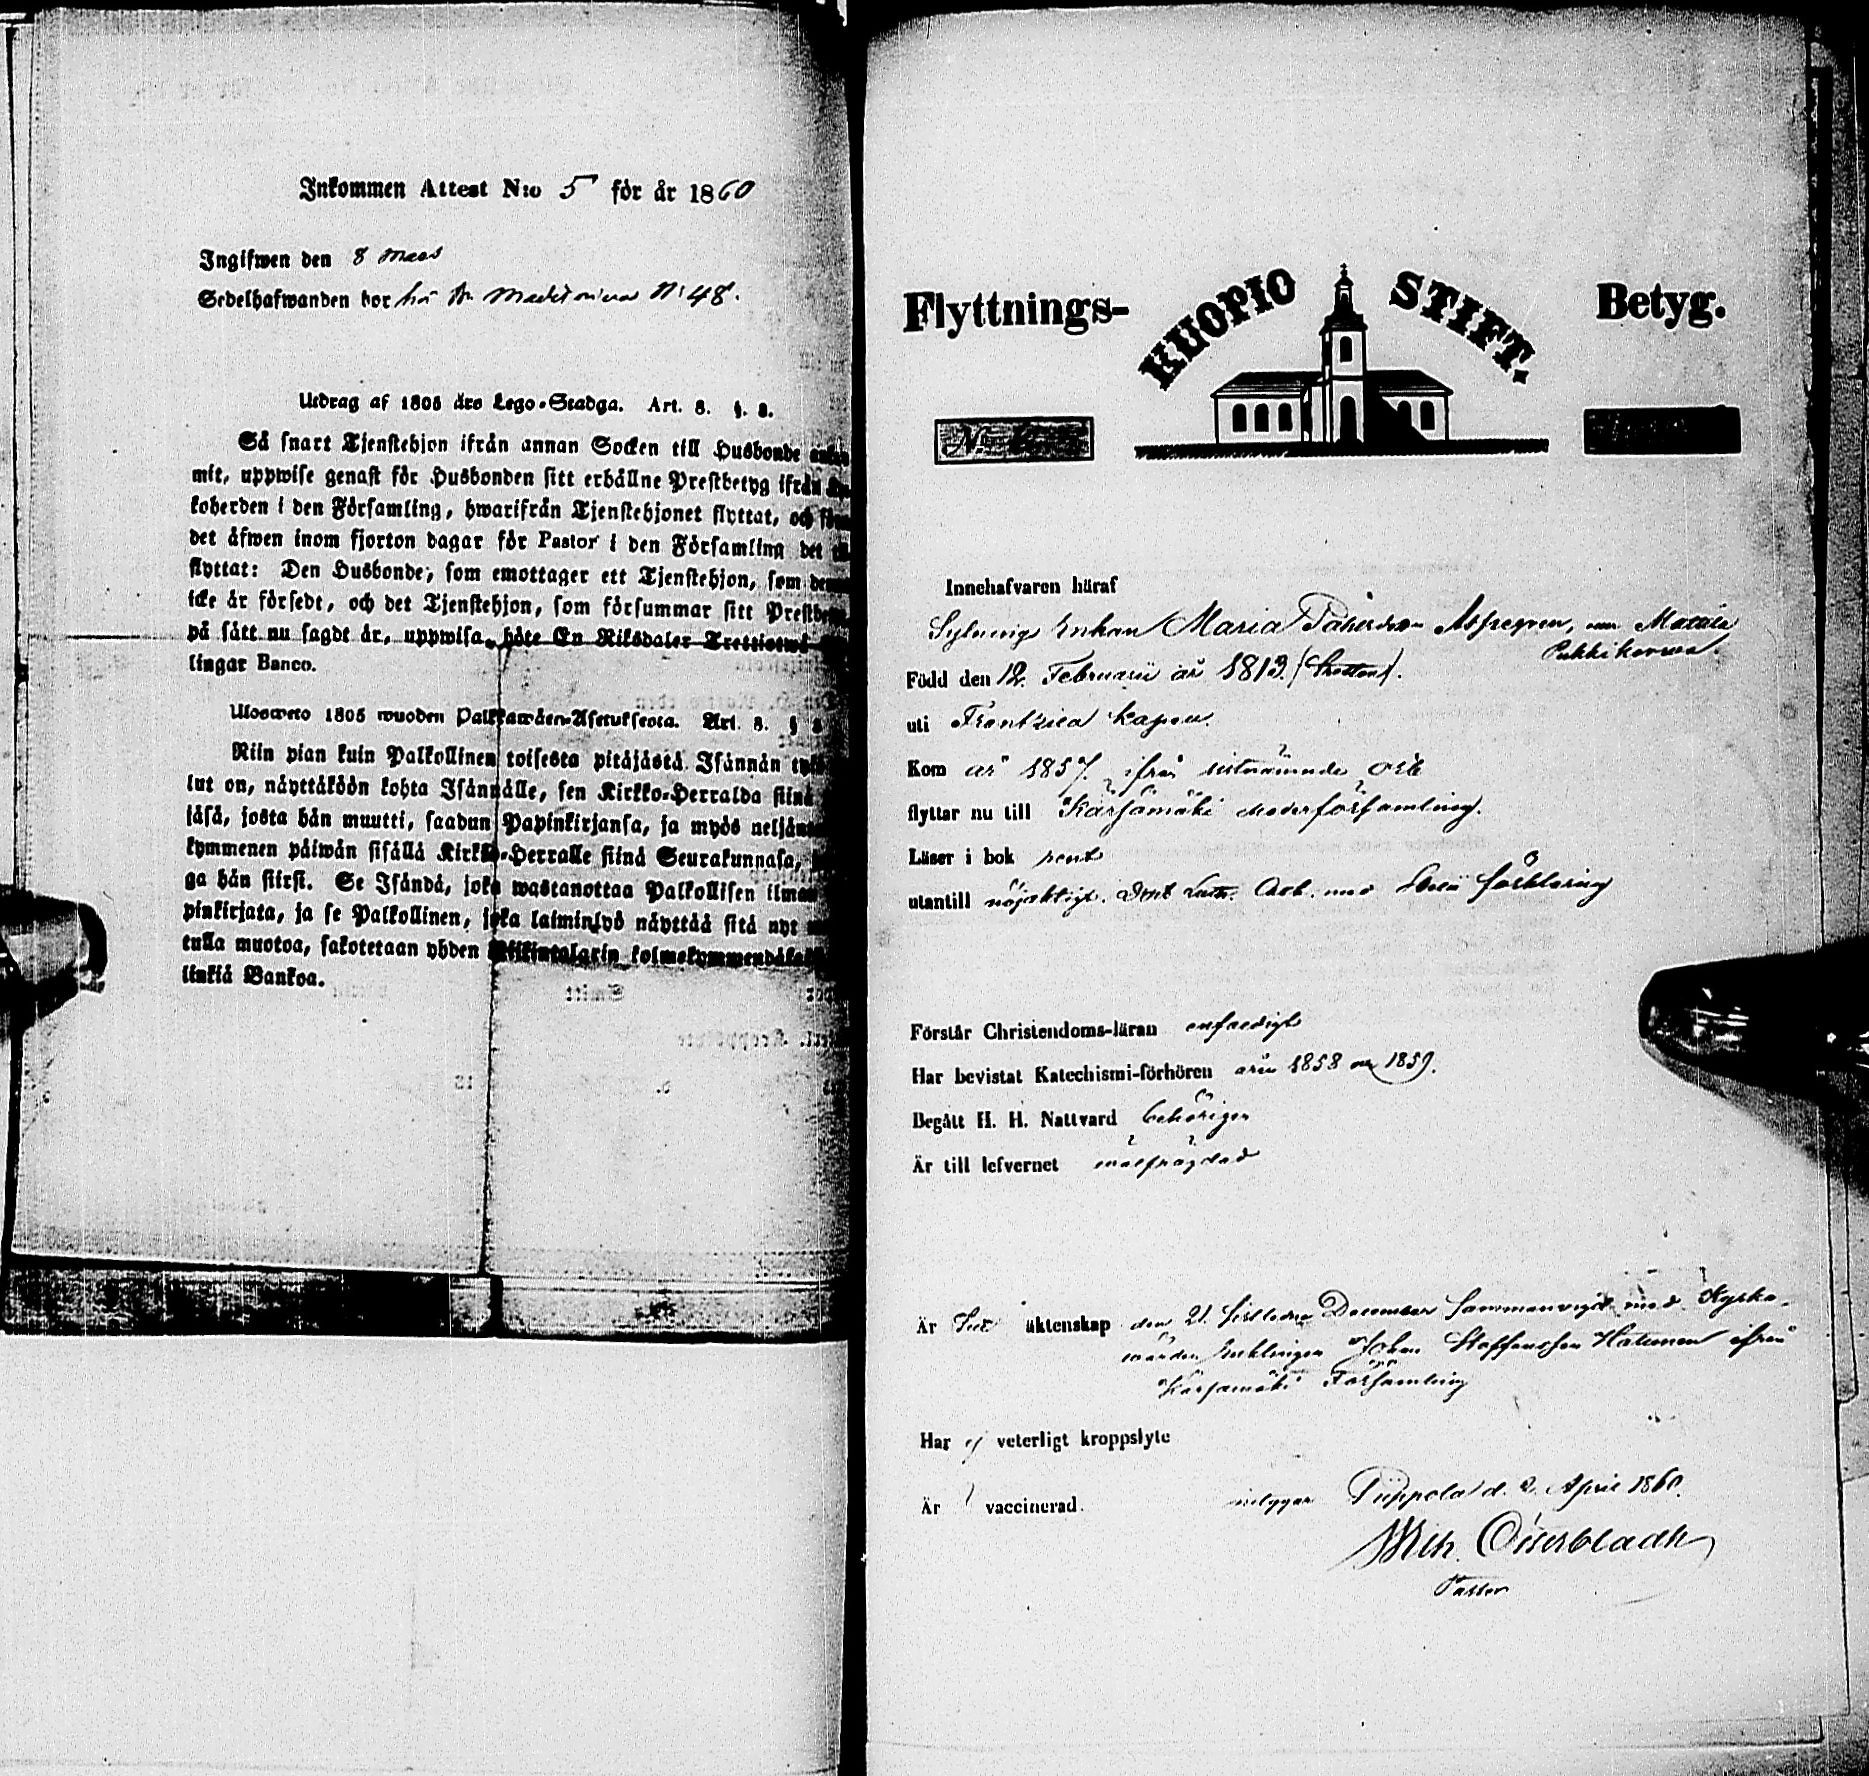 Inkommen Attest N:o 5 för år 1860
Ingifwen den 8
Sedelhafwanden bor N: 48.
Utdrag af 1805 års Lego-Stadga. Art. 8. §. 8.
Så snart Tjenstehjon ifrån annan Socken till Husbonde
mit, uppwise genast för Husbonden sitt erhållne Prestbetyg ifrån
koherden i den Församling, hwarifrån Tjenstehjonet flyttat, och
det äfwen inom fjorton dagar för Pastor i den Församling det
flyttat: Den Husbonde, som emottager ett Tjenstehjon, som
icke är försedt, och det Tjenstehjon, som försummar sitt
på sätt nu sagdt är, uppwisa, böte En Riksdaler
lingar Banco.
Ulosweto 1805 wuoden Palkkawäen-Asetuksesta. Art. 8. §
Niin pian kuin Palkollinen toisesta pitäjästä Isännän
lut on, näyttäköön kohta Isännälle, sen Kirkko-Herralda siinä
jäsä, josta hän muutti, saadun Papinkirjansa, ja myös
kymmenen päiwän sisällä Kirkko-Herralle siinä Seurakunnasa,
ga hän siirsi. Se Isändä, joka wastanottaa Palkollisen ilman
pinkirjata, ja se Palkollinen, joka laiminlyö näyttää sitä nyt
tulla muotoa, sakotetaan yhden Riikintalarin
linkiä Bankoa.
Flyttnings- KUOPIO STIFT. Betyg.
N:o
Innehafvaren häraf
Sytnings Enkan Maria Aspegren,
Pukkikorwa.
Född den 12. Februarii år 1813. (Tretton).
uti Frantzila kapell.
Kom år 1857. ifrån sistnämnde ort
flyttar nu till Kärsämäki Moderförsamling.
Läser i bok rent
utantill nöjaktigt. Doct Luth. Cat. med förklaring
Förstår Christendoms-läran enfaldigt
Har bevistat Katechismi-förhören åren 1858 och 1859.
Begått H. H. Nattvard behörigen
Är till lefvernet wälfrägdad
Är äktenskap den 21. sistledne December sammanvigd med Kyrko-
wärden Enklingen Johan Staffansson ifrån
Kärsämäki Församling
Har ej veterligt kroppslyte
Är vaccinerad. intygar Pippola d. 2. April 1860.
Wilh. Österbladh
Pastor